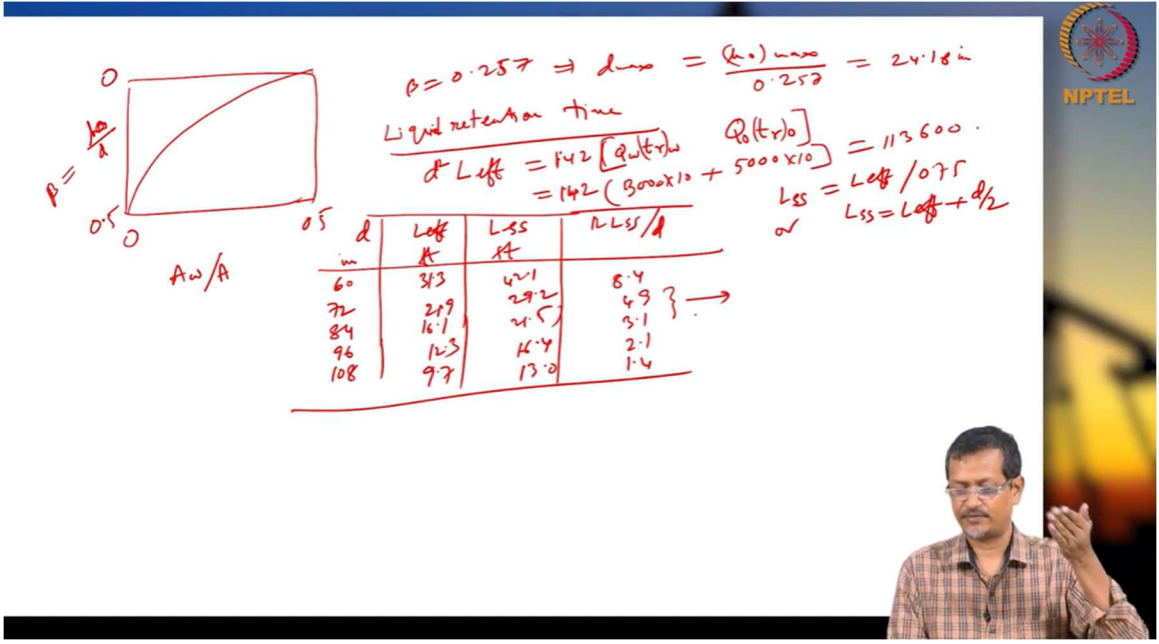 β = 0.257 ⇒ dmax = (ho)max / 0.257 = 24.18 in
Liquid retention time
d² Leff = 1.42 [Qw(tr)w Qo(tr)o]
= 1.42 (3000×10 + 5000×10) = 113600.
Lss = Leff / 075
or Lss = Leff + d/2
0
β = ho/d
0.5
0
0.5
Aw/A
d in Leff ft Lss ft 12 Lss/d
60 31.3 42.1 8.4
72 21.9 29.2 4.9
84 16.1 21.5 3.1
96 12.3 16.4 2.1
108 9.7 13.0 1.4
NPTEL